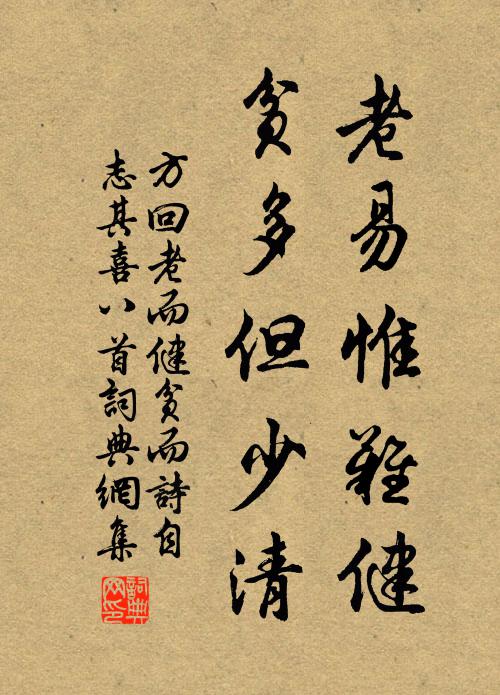 老易惟難健
貧多但少清
方回老而健貧而詩自
志其喜八首詞典網集
詞典网印